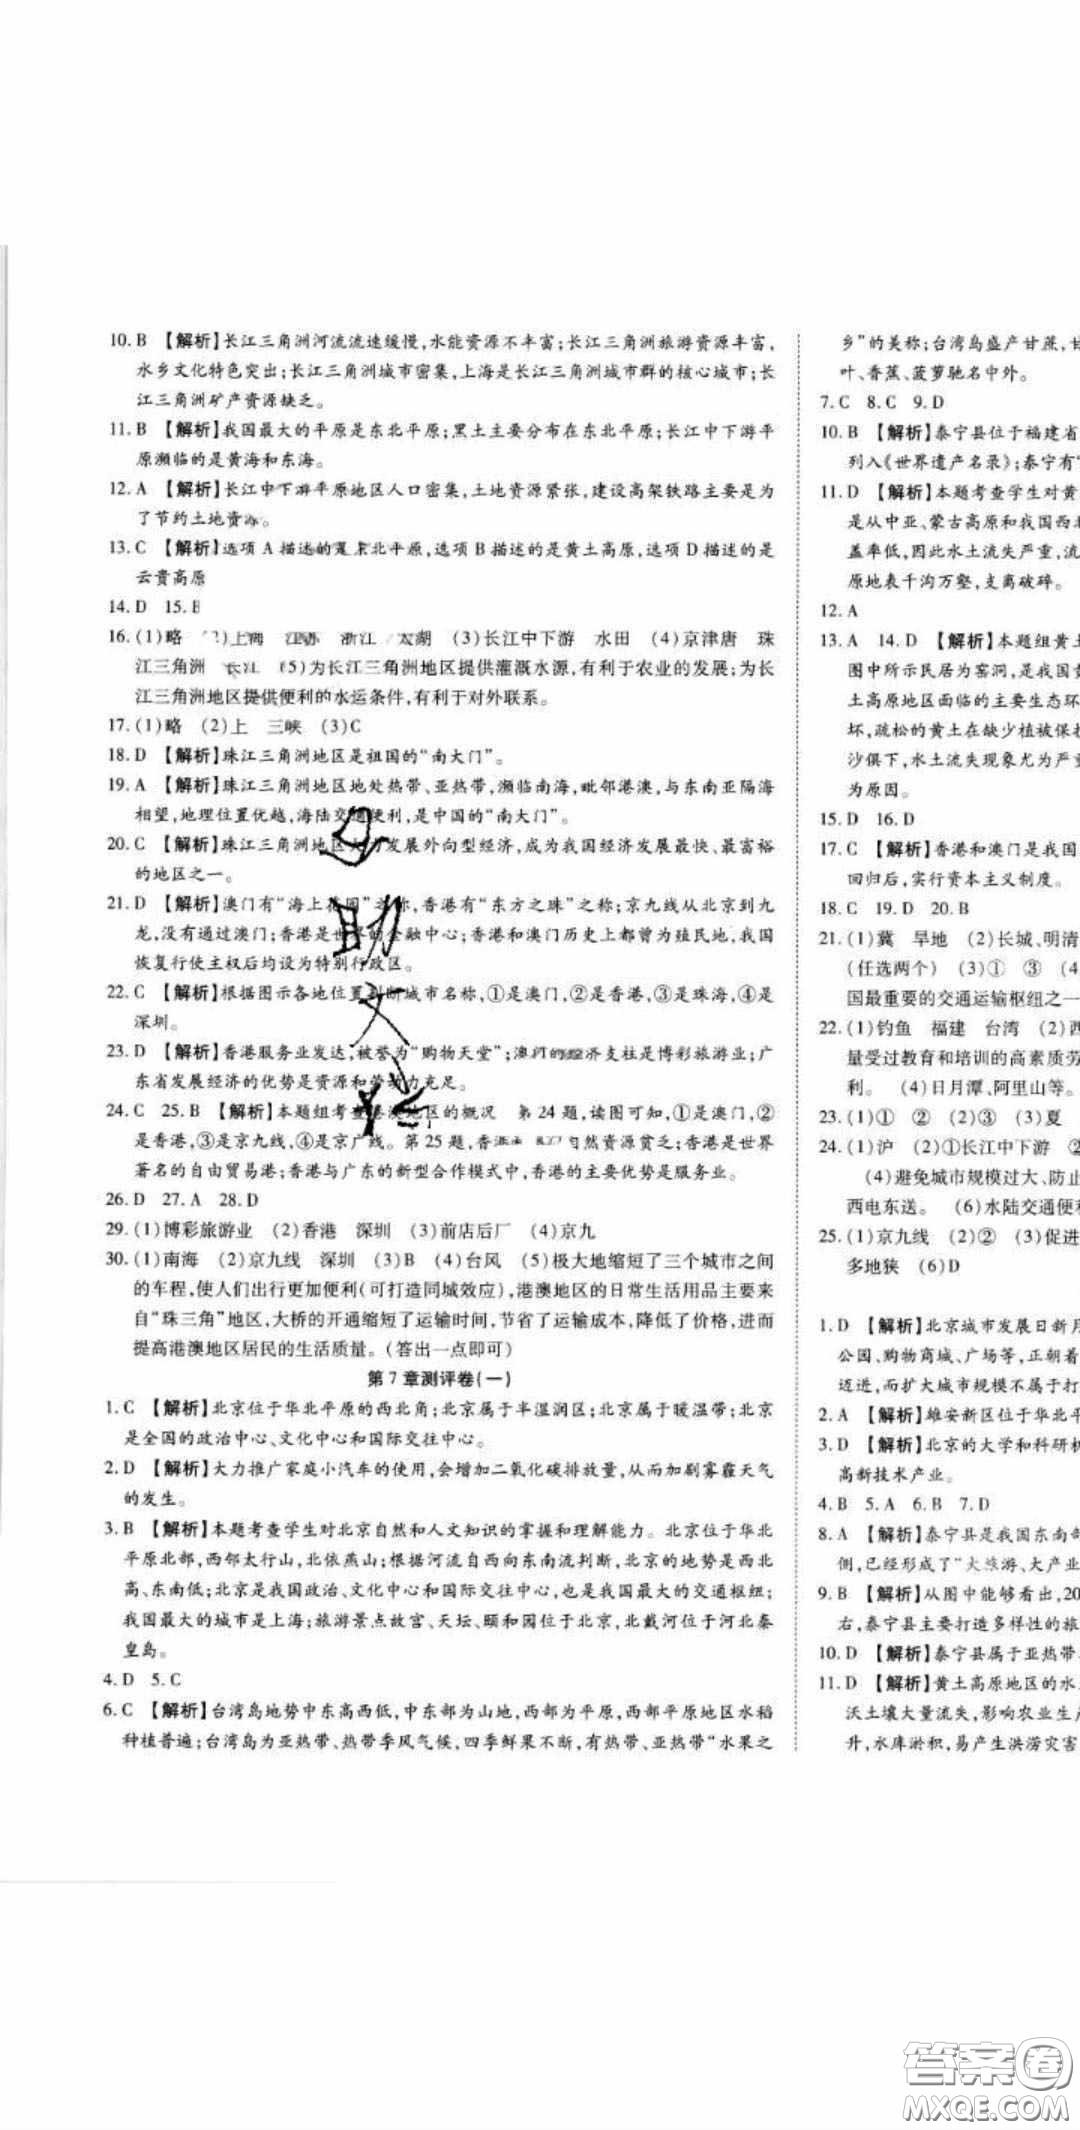 10. B 【解析】长江三角洲河流流速缓慢,水能资源不丰富;长江三角洲旅游资源丰富,
水乡文化特色突出;长江三角洲城市密集,上海是长江三角洲城市群的核心城市;长
江三角洲矿产资源缺乏。
11. B 【解析】我国最大的平原是东北平原;黑土主要分布在东北平原;长江中下游平
原濒临的是黄海和东海。
12. A 【解析】长江中下游平原地区人口密集,土地资源紧张,建设高架铁路主要是为
了节约土地资源。
13. C 【解析】选项 A 描述的是东北平原,选项 B 描述的是黄土高原,选项 D 描述的是
云贵高原
14. D 15. B
16. (1)略 (2)上海 江苏 浙江 太湖 (3)长江中下游 水田 (4)京津唐 珠
江三角洲 长江 (5)为长江三角洲地区提供灌溉水源,有利于农业的发展;为长
江三角洲地区提供便利的水运条件,有利于对外联系。
17. (1)略 (2)上 三峡 (3)C
18. D 【解析】珠江三角洲地区是祖国的“南大门”。
19. A 【解析】珠江三角洲地区地处热带、亚热带,濒临南海,毗邻港澳,与东南亚隔海
相望,地理位置优越,海陆交通便利,是中国的“南大门”。
20. C 【解析】珠江三角洲地区大力发展外向型经济,成为我国经济发展最快、最富裕
的地区之一。
21. D 【解析】澳门有“海上花园”之称,香港有“东方之珠”之称;京九线从北京到九
龙,没有通过澳门;香港是世界的金融中心;香港和澳门历史上都曾为殖民地,我国
恢复行使主权后均设为特别行政区。
22. C 【解析】根据图示各地位置判断城市名称,①是澳门,②是香港,③是珠海,④是
深圳。
23. D 【解析】香港服务业发达,被誉为“购物天堂”;澳门的经济支柱是博彩旅游业;广
东省发展经济的优势是资源和劳动力充足。
24. C 25. B 【解析】本题组考查港澳地区的概况 第 24 题,读图可知,①是澳门,②
是香港,③是京九线,④是京广线。第 25 题,香港 自然资源贫乏;香港是世界
著名的自由贸易港;香港与广东的新型合作模式中,香港的主要优势是服务业。
26. D 27. A 28. D
29. (1)博彩旅游业 (2)香港 深圳 (3)前店后厂 (4)京九
30. (1)南海 (2)京九线 深圳 (3)B (4)台风 (5)极大地缩短了三个城市之间
的车程,使人们出行更加便利(可打造同城效应),港澳地区的日常生活用品主要来
自“珠三角”地区,大桥的开通缩短了运输时间,节省了运输成本,降低了价格,进而
提高港澳地区居民的生活质量。(答出一点即可)
第 7 章测评卷(一)
1. C 【解析】北京位于华北平原的西北角;北京属于半湿润区;北京属于暖温带;北京
是全国的政治中心、文化中心和国际交往中心。
2. D 【解析】大力推广家庭小汽车的使用,会增加二氧化碳排放量,从而加剧雾霾天气
的发生。
3. B 【解析】本题考查学生对北京自然和人文知识的掌握和理解能力。北京位于华北
平原北部,西邻太行山,北依燕山;根据河流自西向东南流判断,北京的地势是西北
高、东南低;北京是我国政治、文化中心和国际交往中心,也是我国最大的交通枢纽;
我国最大的城市是上海;旅游景点故宫、天坛、颐和园位于北京,北戴河位于河北秦
皇岛。
4. D 5. C
6. C 【解析】台湾岛地势中东高西低,中东部为山地,西部为平原,西部平原地区水稻
种植普遍;台湾岛为亚热带、热带季风气候,四季鲜果不断,有热带、亚热带“水果之
乡”的美称;台湾岛盛产甘蔗,甘
叶、香蕉、菠萝驰名中外。
7. C 8. C 9. D
10. B 【解析】泰宁县位于福建省
列入《世界遗产名录》;泰宁有“
11. D 【解析】本题考查学生对黄
是从中亚、蒙古高原和我国西北
盖率低,因此水土流失严重,流
原地表千沟万壑,支离破碎。
12. A
13. A 14. D 【解析】本题组黄土
图中所示民居为窑洞,是我国黄
土高原地区面临的主要生态环
坏,疏松的黄土在缺少植被保护
沙俱下,水土流失现象尤为严重
为原因。
15. D 16. D
17. C 【解析】香港和澳门是我国
回归后,实行资本主义制度。
18. C 19. D 20. B
21. (1)冀 旱地 (2)长城、明清
(任选两个) (3)① ③ (4
国最重要的交通运输枢纽之一
22. (1)钓鱼 福建 台湾 (2)西
量受过教育和培训的高素质劳
利。 (4)日月潭、阿里山等。
23. (1)① ② (2)③ (3)夏
24. (1)沪 (2)①长江中下游 ②
(4)避免城市规模过大、防止
西电东送。 (6)水陆交通便利
25. (1)京九线 (2)② (3)促进
多地狭 (6)D
1. D 【解析】北京城市发展日新月
公园、购物商城、广场等,正朝着
迈进,而扩大城市规模不属于打
2. A 【解析】雄安新区位于华北平
3. D 【解析】北京的大学和科研机
高新技术产业。
4. B 5. A 6. B 7. D
8. A 【解析】泰宁县是我国东南部
倒,已经形成了“大旅游、大产业
9. B 【解析】从图中能够看出,20
右,泰宁县主要打造多样性的旅
10. D 【解析】泰宁县属于亚热带
11. D 【解析】黄土高原地区的水
沃土壤大量流失,影响农业生产
升,水库淤积,易产生洪涝灾害
答案圈
MXQE.COM